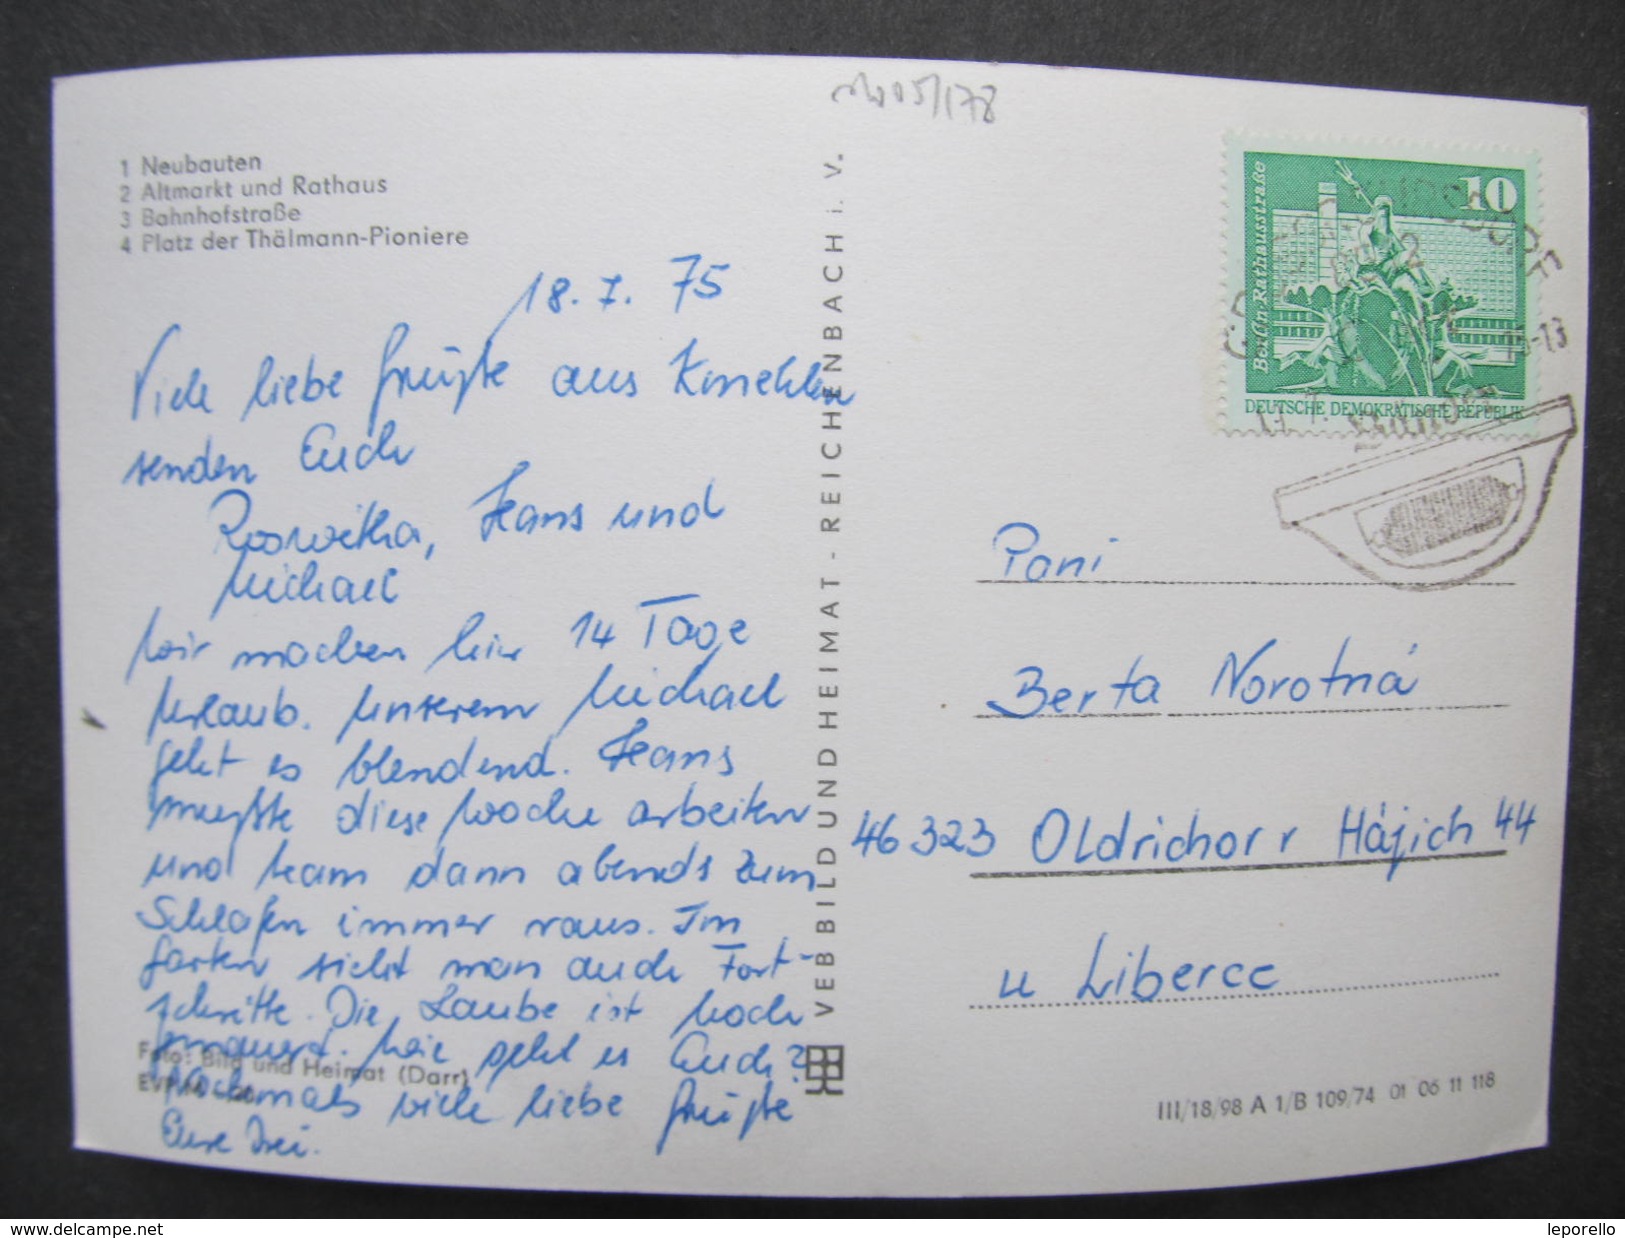 1 Neubauten
2 Altmarkt und Rathaus
3 Bahnhofstraße
4 Platz der Thälmann-Pioniere
18. 7. 75
Viele liebe Grüße aus
senden Euch
Roswitha, Hans und
Michael
Wir machen hier 14 Tage
Urlaub. Unserem Michael
geht es blendend. Hans
mußte diese Woche arbeiten
und kam dann abends zum
Schlafen immer raus. Im
Garten sieht man auch Fort-
schritte. Die Laube ist hoch
gemauert. Wie geht es Euch?
Nochmals viele liebe Grüße
Eure Drei.
Foto: Bild und Heimat (Darr)
EVP M
VEB BILD UND HEIMAT - REICHENBACH i. V.
05/178
10
Berlin-Rathausstraße
DEUTSCHE DEMOKRATISCHE REPUBLIK
Pani
Berta Novotná
46323 Oldřichov v Hájích 44
u Liberce
III/18/98 A 1/B 109/74 01 06 11 118
www.delcampe.net
leporello